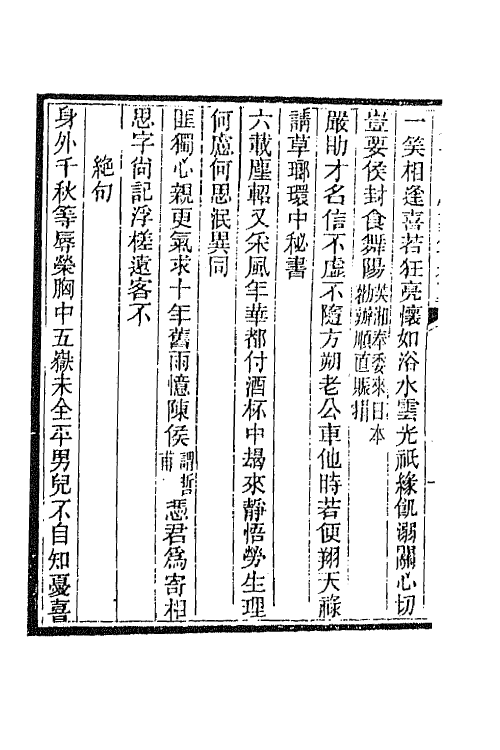 一笑相逢喜若狂亮懷如浴水雲光祇緣飢溺關心切
豈要侯封食舞陽英湘奉委來日本
勸辦順直賑捐
嚴助才名信不虛不隨方朔老公車他時若便翔天祿
講草瑯環中秘書
六載塵軺又采風年華都付酒杯中朅來靜悟勞生理
何慮何思泯異同
匪獨心親更氣求十年舊雨憶陳侯謂哲
甫憑君爲寄相
思字尙記浮槎遠客不
絕句
身外千秋等辱榮胸中五嶽未全平男兒不自知憂喜